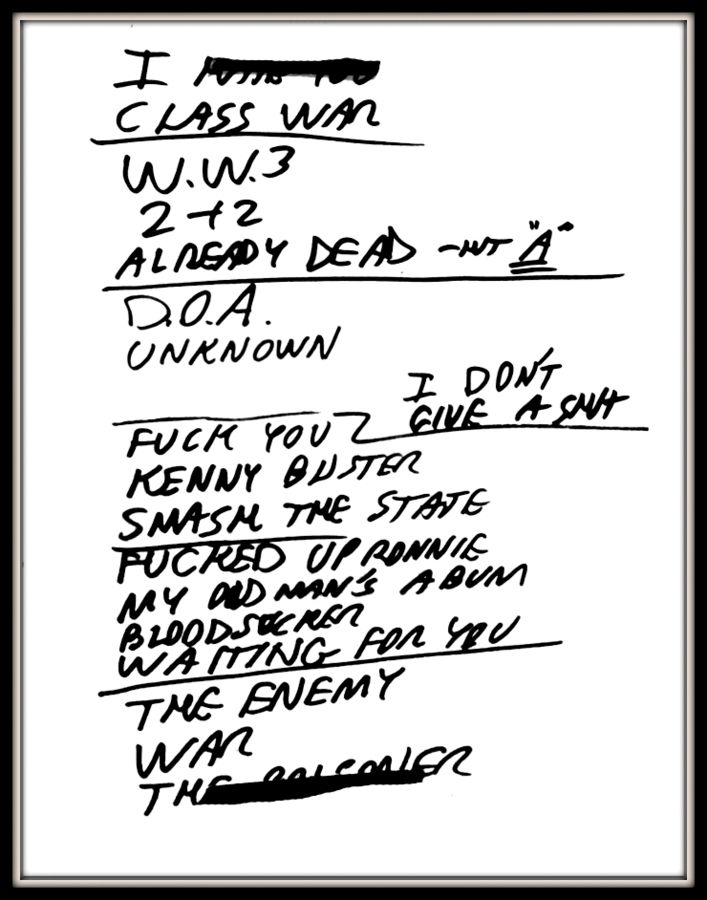 I
CLASS WAR
W.W.3
2+2
ALREADY DEAD - "A"
D.O.A.
UNKNOWN
I DON'T
GIVE A SHIT
FUCK YOU
KENNY BUSTER
SMASH THE STATE
FUCKED UP RONNIE
MY OLD MAN'S A BUM
BLOODSUCKER
WAITING FOR YOU
THE ENEMY
WAR
THE PRISONER